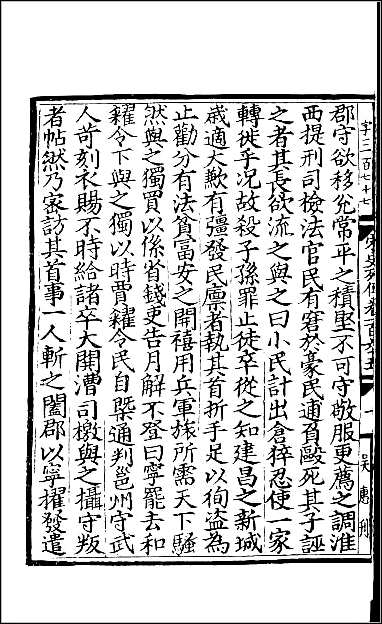 字三百七十七
郡守欲移兌常平之積堅不可守敬服更薦之調淮
西提刑司檢法官民有窘於豪民逋負毆死其子誣
之者其長欲流之與之曰小民計出倉猝忍使一家
轉徙乎況故殺子孫罪止徒卒從之知建昌之新城
歲適大歉有彊發民廩者執其首折手足以徇盜為
止勸分有法貧富安之開禧用兵軍旅所需天下騷
然與之獨買以係省錢吏告月解不登曰寧罷去和
糴令下與之獨以時賈糴令民自槩通判邕州守武
人苛刻衣賜不時給諸卒大閧漕司檄與之攝守叛
者帖然乃密訪其首事一人斬之闔郡以寧擢發遣